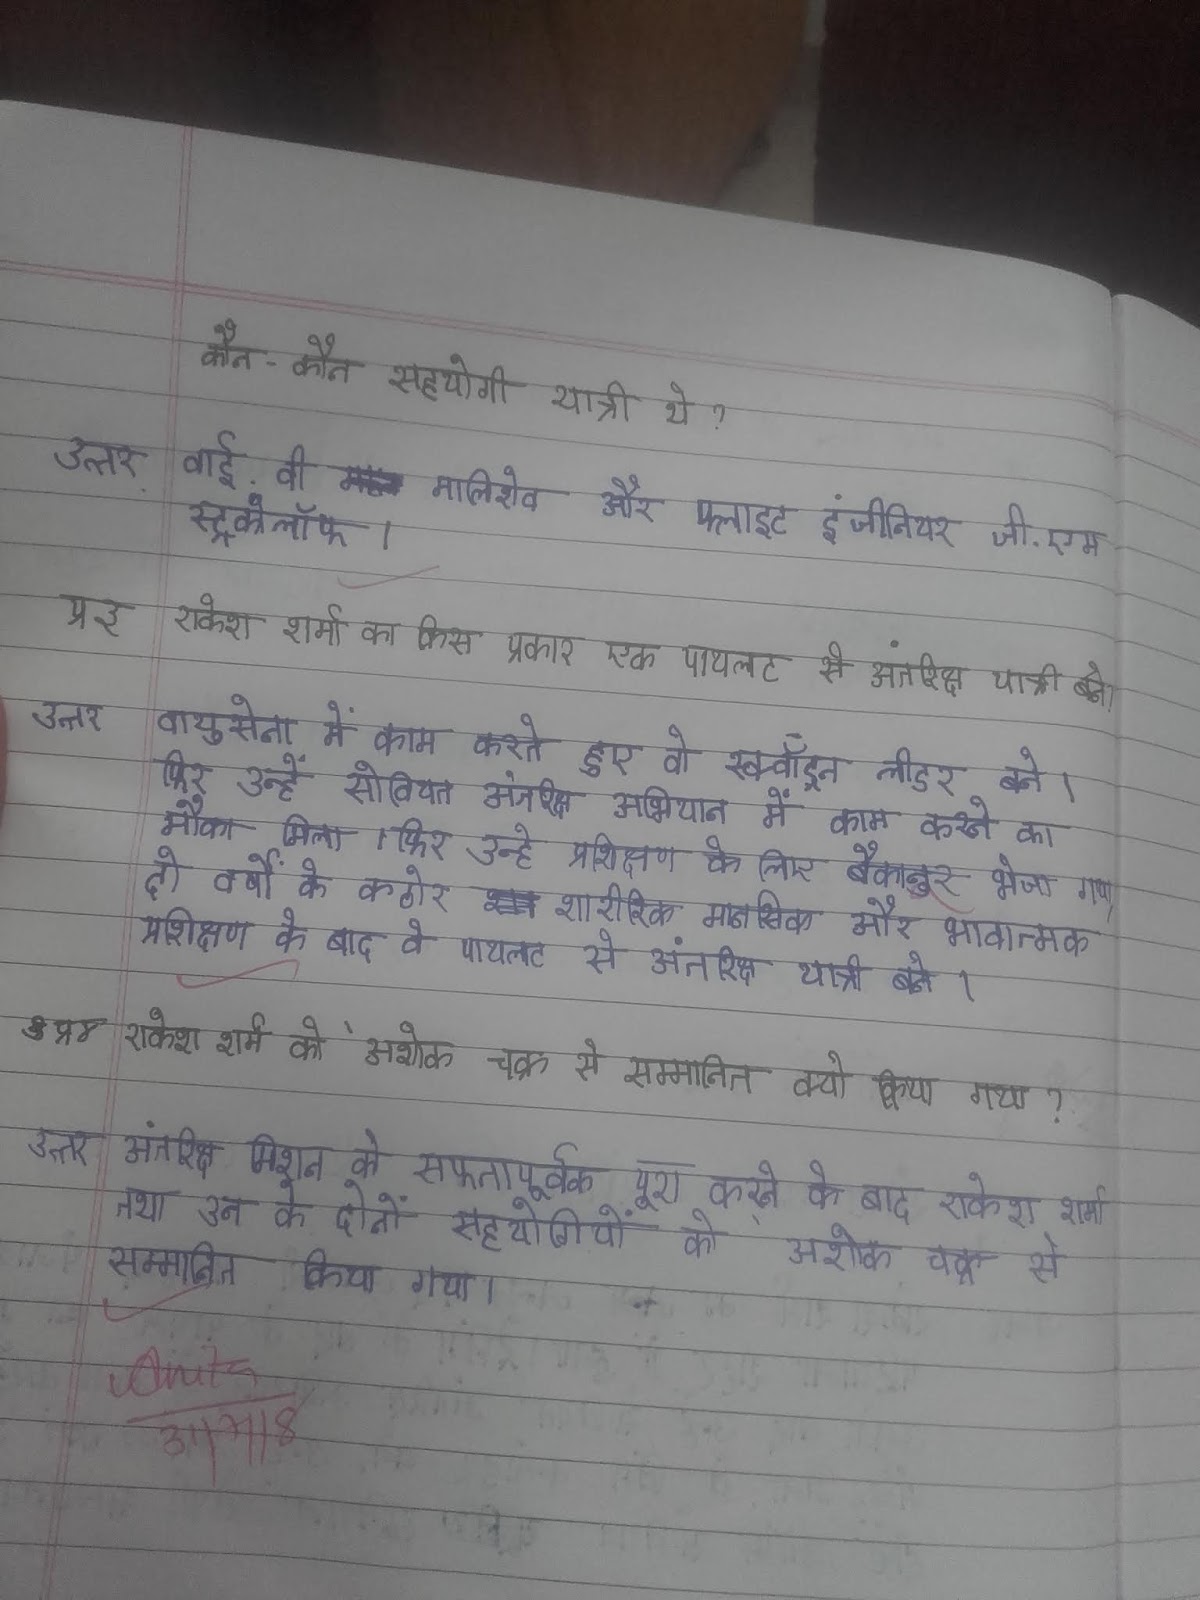 कौन - कौन सहयोगी यात्री थे ?
उत्तर. वाई. वी मालिशेव और फ्लाइट इंजीनियर जी. एम
स्ट्रकोलॉफ ।
प्र३ राकेश शर्मा का किस प्रकार एक पायलट से अंतरिक्ष यात्री बने।
उत्तर वायुसेना में काम करते हुए वो स्क्वॉड्रन लीडर बने ।
फिर उन्हें सोवियत अंतरिक्ष अभियान में काम करने का
मौका मिला । फिर उन्हे प्रशिक्षण के लिए बैकानुर भेजा गया,
दो वर्षों के कठोर शारीरिक मानसिक और भावात्मक
प्रशिक्षण के बाद वे पायलट से अंतरिक्ष यात्री बने ।
प्र४ राकेश शर्म को ' अशोक चक्र से सम्मानित क्यो किया गया ?
उत्तर अंतरिक्ष मिशन को सफतापूर्वक पूरा करने के बाद राकेश शर्मा
तथा उन के दोनों सहयोगियों को ' अशोक चक्र से
सम्मानित किया गया।